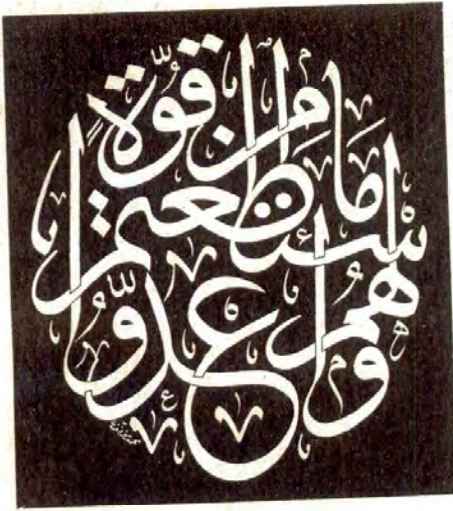 وَأَعِدُّوا لَهُم مَّا اسْتَطَعْتُم مِّن قُوَّةٍ